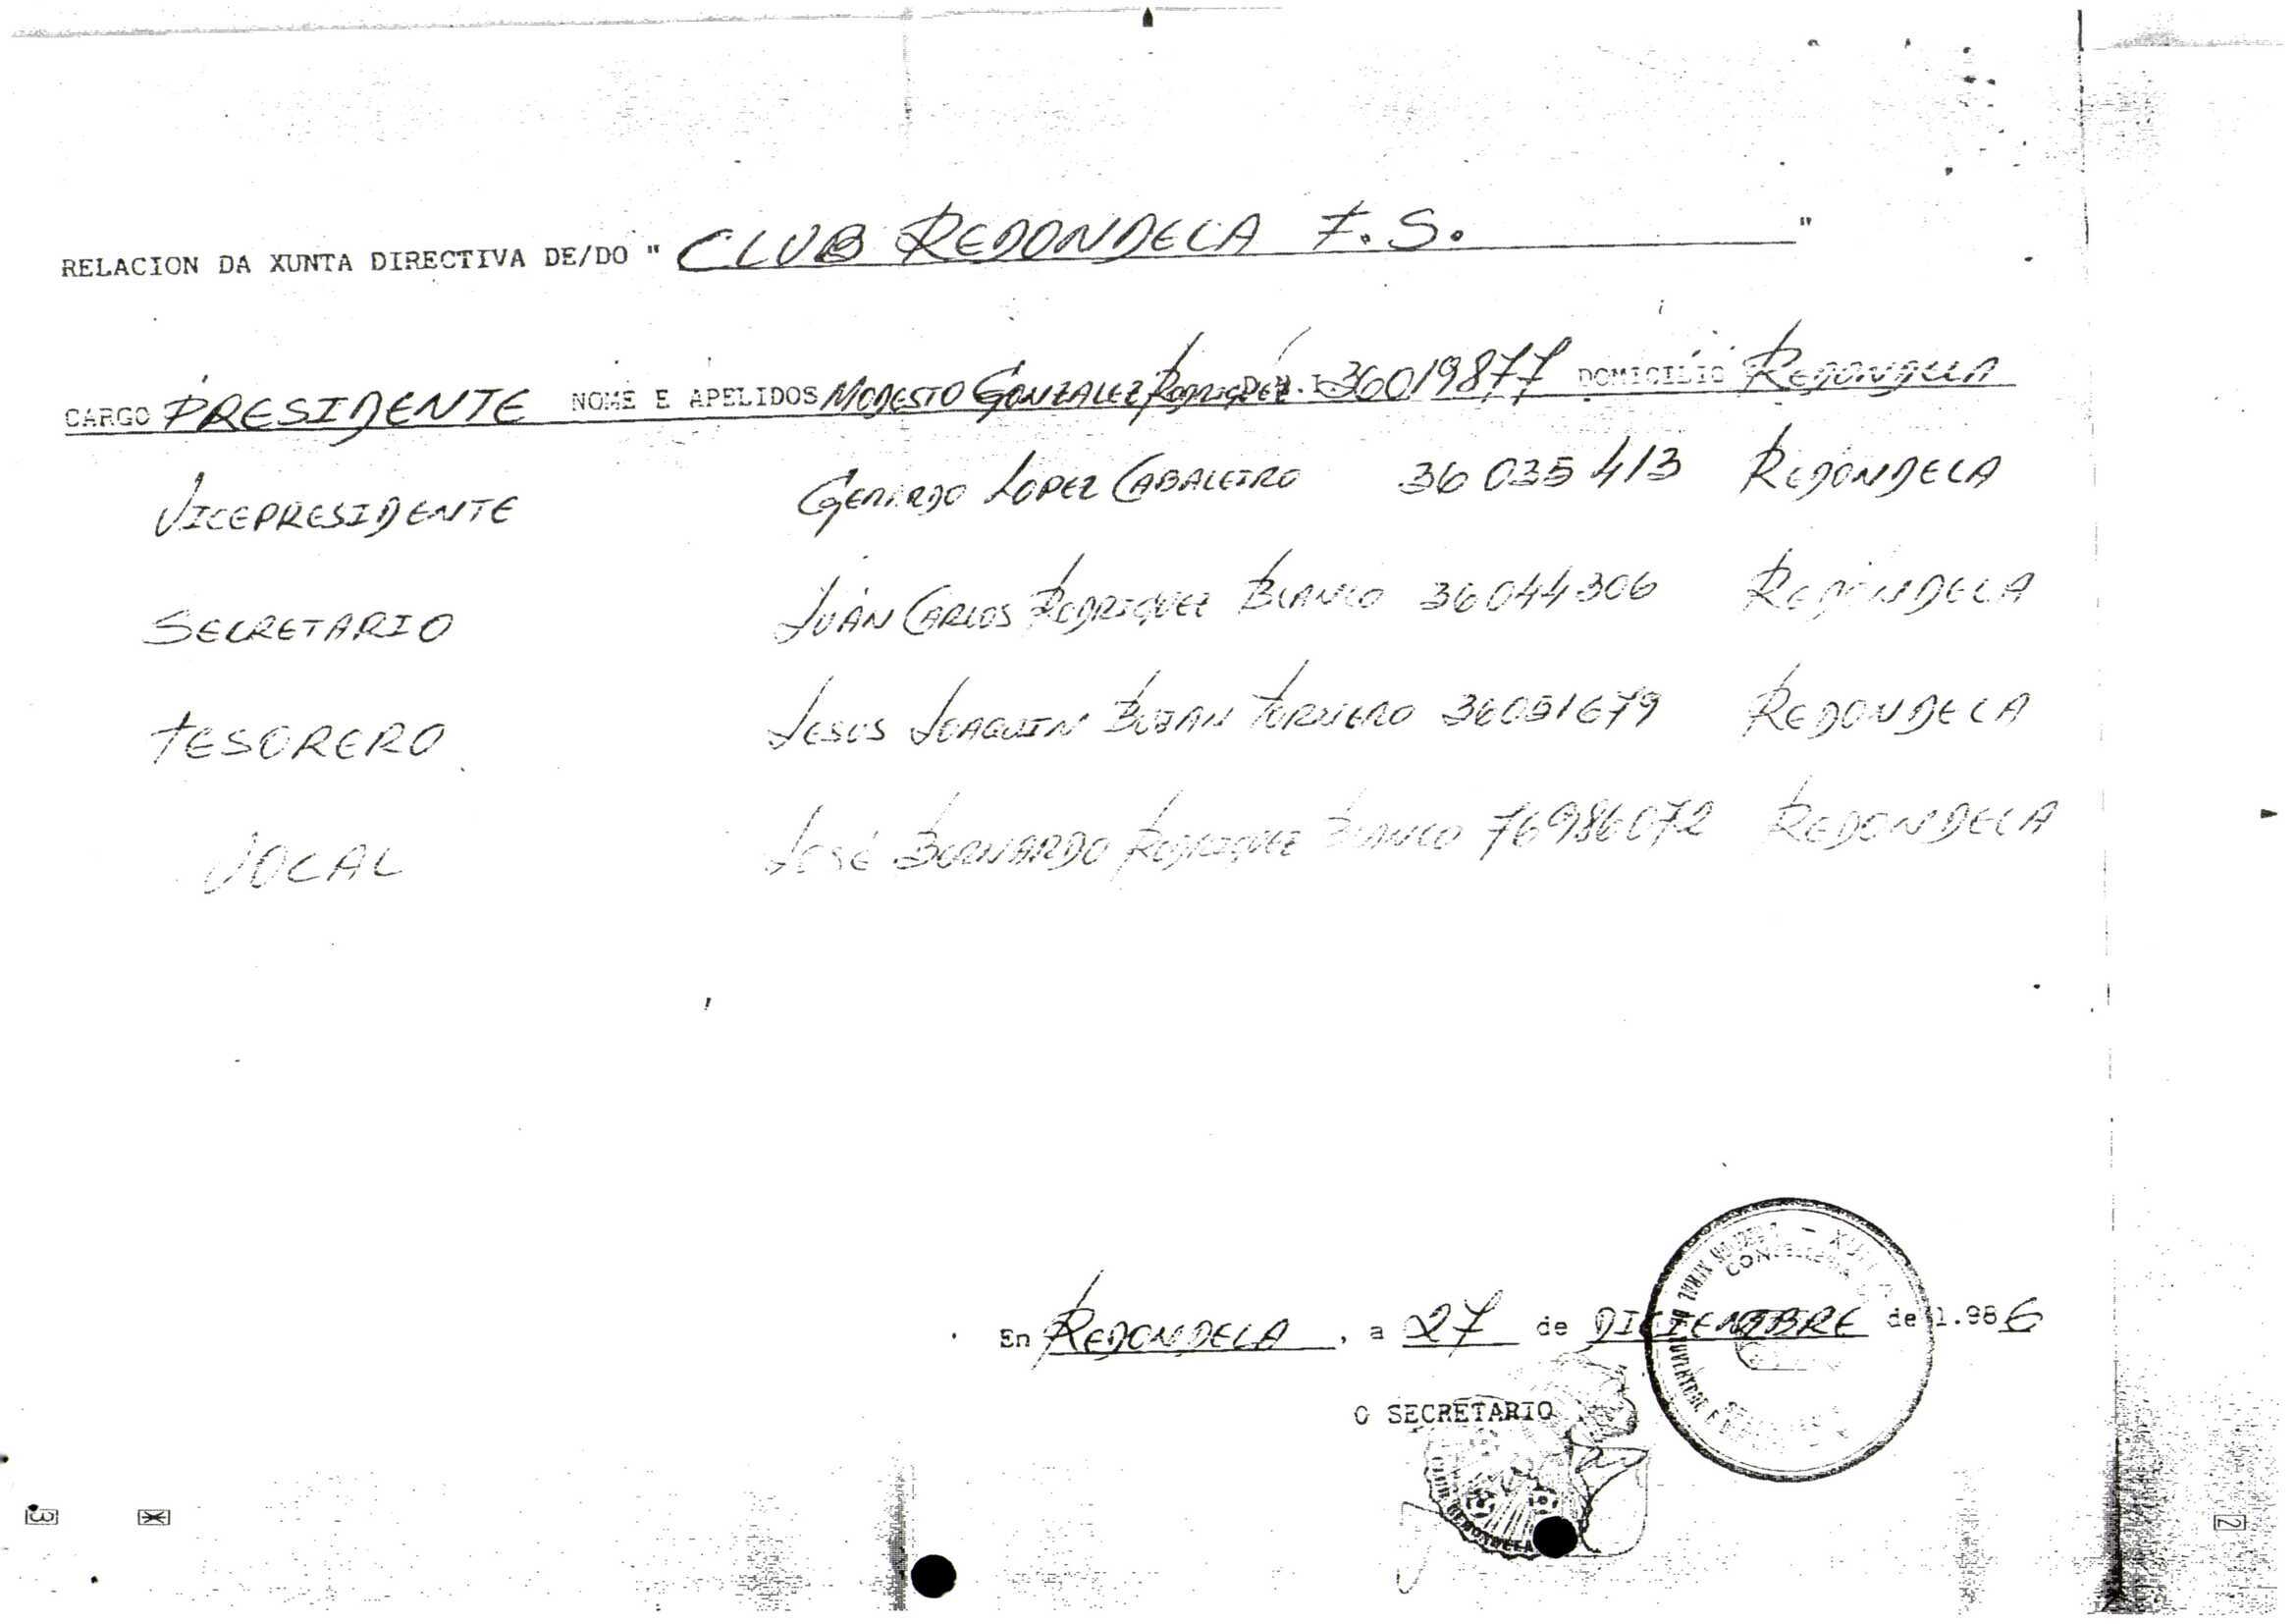 RELACION DA XUNTA DIRECTIVA DE/DO " CLUB REDONDELA F.S. "
CARGO PRESIDENTE NOME E APELIDOS MODESTO GONZALEZ RODRIGUEZ D.N.I. 36019877 DOMICILIO REDONDELA
VICEPRESIDENTE GERARDO LOPEZ CABALEIRO 36035413 REDONDELA
SECRETARIO JUAN CARLOS RODRIGUEZ BLANCO 36044306 REDONDELA
TESORERO JESUS JOAQUIN REDONDELA
VOCAL JOSÉ BERNARDO RODRIGUEZ BLANCO 76986072 REDONDELA
En REDONDELA, a 27 de DICIEMBRE de 1.986
O SECRETARIO
CLUB REDONDELA
3
2